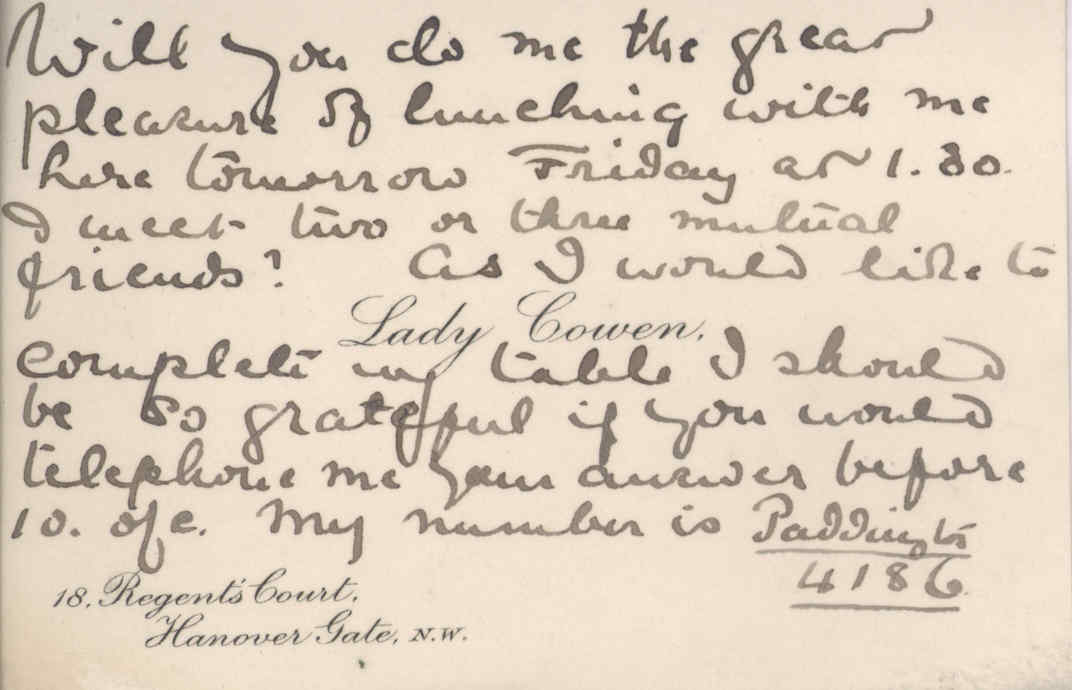 Will you do me the great
pleasure of lunching with me
here tomorrow Friday at 1.30.
I meet two or three mutual
friends? As I would like to
Lady Cowen.
complete my table I should
be so grateful if you would
telephone me your answer before
10. o/c. My number is Paddington
4186
18, Regent's Court,
Hanover Gate, N.W.